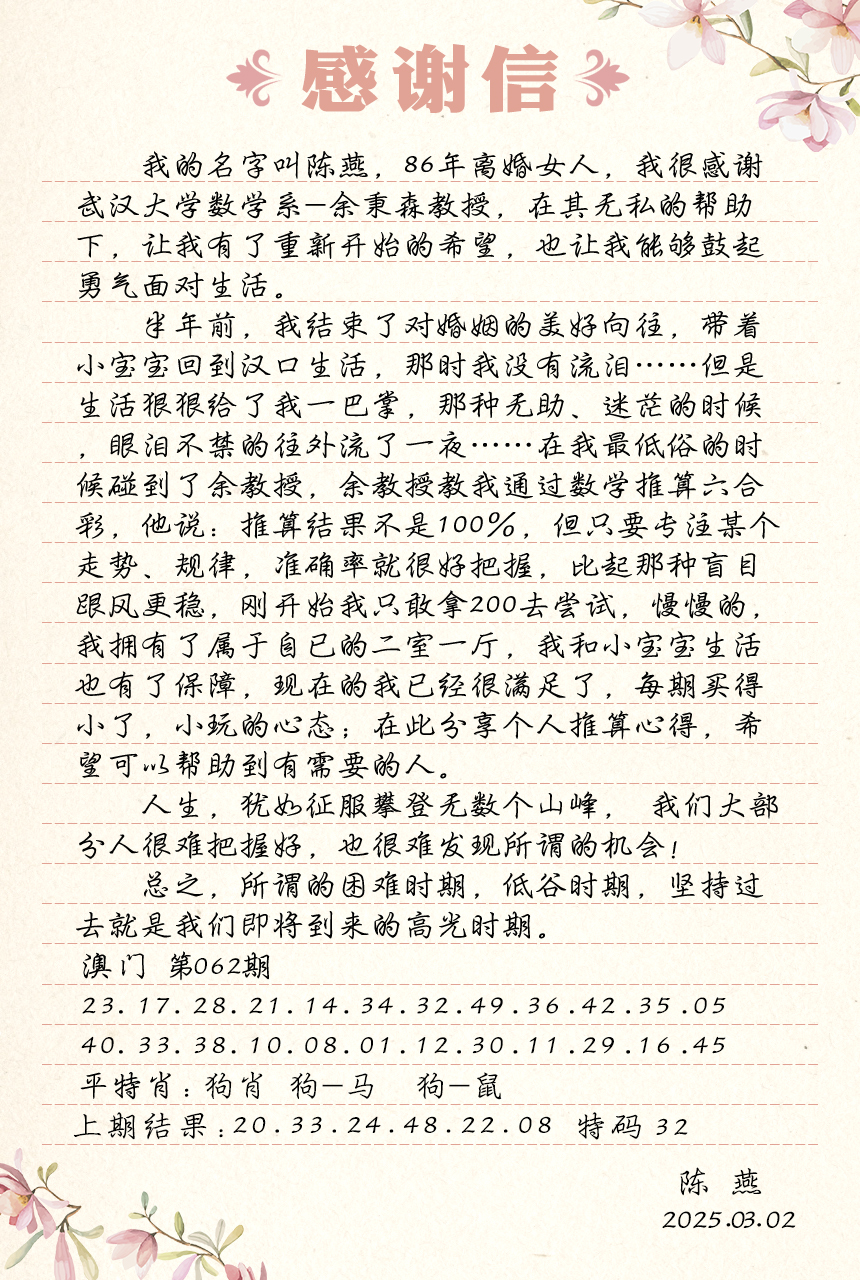 感谢信
我的名字叫陈燕，86年离婚女人，我很感谢
武汉大学数学系—余秉森教授，在其无私的帮助
下，让我有了重新开始的希望，也让我能够鼓起
勇气面对生活。
半年前，我结束了对婚姻的美好向往，带着
小宝宝回到汉口生活，那时我没有流泪……但是
生活狠狠给了我一巴掌，那种无助、迷茫的时候
，眼泪不禁的往外流了一夜……在我最低俗的时
候碰到了余教授，余教授教我通过数学推算六合
彩，他说：推算结果不是100%，但只要专注某个
走势、规律，准确率就很好把握，比起那种盲目
跟风更稳，刚开始我只敢拿200去尝试，慢慢的，
我拥有了属于自已的二室一厅，我和小宝宝生活
也有了保障，现在的我已经很满足了，每期买得
小了，小玩的心态；在此分享个人推算心得，希
望可以帮助到有需要的人。
人生，犹如征服攀登无数个山峰， 我们大部
分人很难把握好，也很难发现所谓的机会！
总之，所谓的困难时期，低谷时期，坚持过
去就是我们即将到来的高光时期。
澳门 第062期
23.17.28.21.14.34.32.49.36.42.35.05
40.33.38.10.08.01.12.30.11.29.16.45
平特肖：狗肖 狗—马 狗—鼠
上期结果：20.33.24.48.22.08 特码 32
陈 燕
2025.03.02